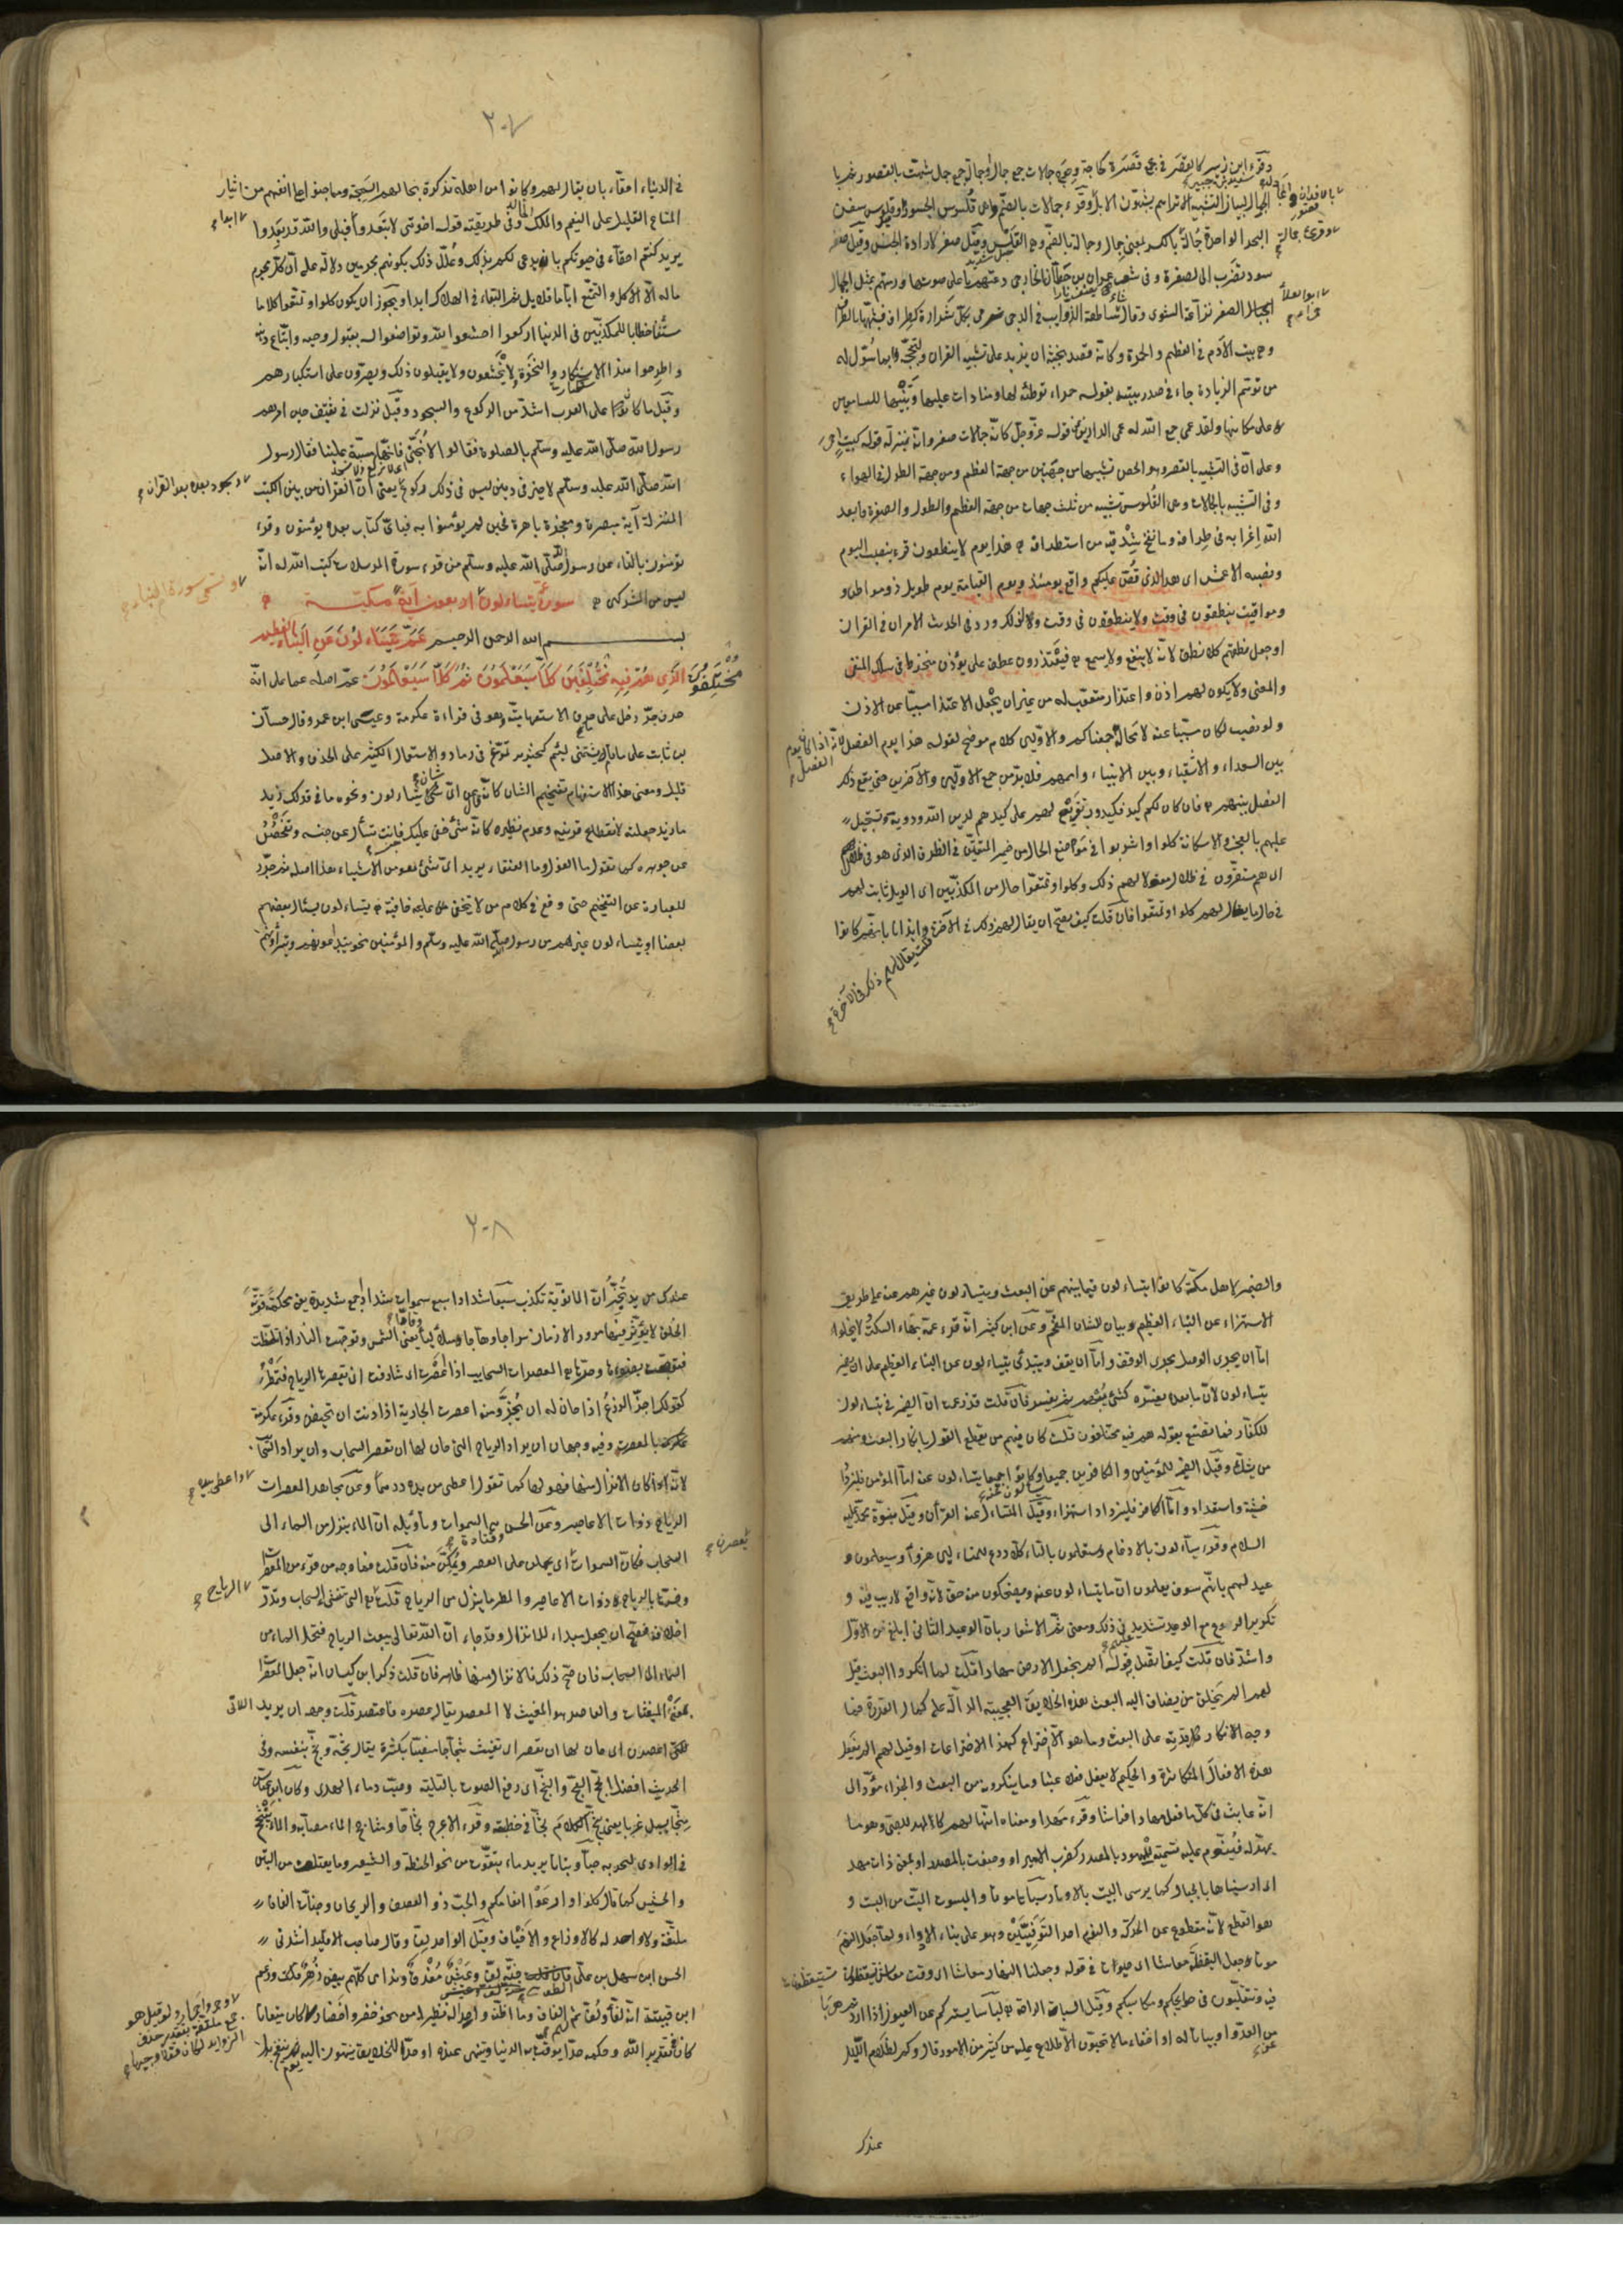 وقرء ابن الزبير كالقصر في جمع قصرة كحاجة وحوج جمالات جمع جمال او جمالة جمع جمل شبهت بالقصور ثم بالجمال
لبيان التشبيه الا تراهم يشبهون الابل وقرء جمالات بالضم وهي قلوس الجسور وقيل قلوس سفن
البحر الواحدة جمالة وقرئ جمالة بالكسر بمعنى جمال وجمالة بالضم وهي القلس وقيل صفر لارادة الجنس وقيل صفر
سود تضرب الى الصفرة وفي شعر عمران بن حطان الخارجي دعتهم باعلى صوتها ورمتهم بمثل الجمال
الصفر نزاعة الشوى وقال ابو العلاء حمراء ساطعة الذوايب في الدجى ترمي بكل شرارة كطراف فشبهها بالطراف
وهو بيت الادم في العظم والحمرة وكانه قصد بخبثه ان يزيد على تشبيه القران ولتبجحه بما سول له
من توهم الزيادة جاء في صدر بيته بقوله حمراء توطئة لها ومناداة عليها وتنبيها للسامعين
على مكانها ولقد عمي جمع الله له عمى الدارين عن قوله عز وجل كانه جمالات صفر فانه بمنزلة قوله كبيت احمر
وعلى ان في التشبيه بالقصر وهو الحصن تشبيها من جهتين من جهة العظم ومن جهة الطول في الهواء
وفي التشبيه بالجمالات وهي القلوس تشبيه من ثلث جهات من جهة العظم والطول والصفرة فابعد
الله اغرابه في طرافه وما نفخ شدقيه من استطرافه هذا يوم لا ينطقون قرء بنصب اليوم
ونصبه الاعمش اي هذا الذي قص عليكم واقع يومئذ ويوم القيامة يوم طويل ذو مواطن
ومواقيت ينطقون في وقت ولا ينطقون في وقت ولذلك ورد في الحديث الامران في القران
او جعل نطقهم كلا نطق لانه لا ينفع ولا يسمع فيعتذرون عطف على يؤذن منخرط في سلك النفي
والمعنى ولا يكون لهم اذن واعتذار متعقب له من غير ان يجعل الاعتذار مسببا عن الاذن
ولو نصب لكان مسببا عنه لا محالة جمعناكم والاولين كلام موضح لقوله هذا يوم الفصل لانه اذا كان يوم الفصل
بين السعداء والاشقياء وبين الانبياء واممهم فلا بد من جمع الاولين والاخرين حتى يقع ذلك
الفصل بينهم فان كان لكم كيد فكيدون تقريع لهم على كيدهم لدين الله وذويه وتسجيل
عليهم بالعجز والاستكانة كلوا واشربوا في موضع الحال من ضمير المتقين في الظرف الذي هو في ظلال
اي هم مستقرون في ظلال مقولا لهم ذلك وكلوا وتمتعوا حال من المكذبين اي الويل ثابت لهم
في حال ما يقال لهم كلوا وتمتعوا فان قلت كيف يصح ان يقال لهم ذلك في الاخرة قلت يقال لهم ذلك في الاخرة ايذانا بانهم كانوا
٢٠٧
في الدنيا احقاء بان يقال لهم وكانوا من اهله تذكيرا بحالهم السمجة وما جنوا على انفسهم من ايثار
المتاع القليل على النعيم والملك الخالد وفي طريقته قوله اخوتي لا تبعدوا ابدا وبلى والله قد بعدوا
يريد كنتم احقاء في حيوتكم بان يدعى لكم بذلك وعلل ذلك بكونهم مجرمين دلالة على ان كل مجرم
ما له الا الاكل والتمتع اياما قلايل ثم البقاء في الهلاك ابدا ويجوز ان يكون كلوا وتمتعوا كلاما
مستأنفا خطابا للمكذبين في الدنيا اركعوا اخشعوا لله وتواضعوا له بقبول وحيه واتباع دينه
واطرحوا هذا الاستكبار والنخوة لا يخشعون ولا يقبلون ذلك ويصرون على استكبارهم
وقيل ما كان على العرب اشد من الركوع والسجود وقيل نزلت في ثقيف حين امرهم
رسول الله صلى الله عليه وسلم بالصلوة فقالوا لا نجبي فانها مسبة علينا فقال رسول
الله صلى الله عليه وسلم لا خير في دين ليس فيه ركوع ولا سجود بعده بعد القران يعني ان القران من بين الكتب
المنزلة آية مبصرة ومعجزة باهرة فحين لم يؤمنوا به فباي كتاب بعده يؤمنون وقرء
تؤمنون بالتاء عن رسول الله صلى الله عليه وسلم من قرء سورة المرسلات كتب الله له انه
ليس من المشركين سورة يتساءلون اربعون آية مكية وتسمى سورة النباء
بسم الله الرحمن الرحيم عم يتساءلون عن النباء العظيم
الذي هم فيه مختلفون كلا سيعلمون ثم كلا سيعلمون عم اصله عما على انه
حرف جر دخل على ما الاستفهامية وهو في قراءة عكرمة وعيسى ابن عمر وقال حسان
بن ثابت على ما قام يشتمني لئيم كخنزير تمرغ في رماد والاستعمال الكثير على الحذف والاصل
قليل ومعنى هذا الاستفهام تفخيم الشان كانه قال عن اي شان يتساءلون ونحوه ما في قولك زيد
ما زيد جعلته لانقطاع قرينه وعدم نظيره كانه شئ خفي عليك فانت تسأل عن جنسه وتفحص
عن جوهره كما تقول ما الغول وما العنقاء تريد اي شئ هو من الاشياء هذا اصله ثم جرد
للعبارة عن التفخيم حتى وقع في كلام من لا تخفى عليه خافية يتساءلون يسأل بعضهم
بعضا او يتساءلون غيرهم من رسول الله صلى الله عليه وسلم والمؤمنين نحو يتداعونهم ويتراءونهم
والضمير لاهل مكة كانوا يتساءلون فيما بينهم عن البعث ويتساءلون غيرهم عنه على طريق
الاستهزاء عن النباء العظيم وبيان للشان المفخم وعن ابن كثير انه قرء عمه بهاء السكت ولا يخلوا
اما ان يجري الوصل مجرى الوقف واما ان يقف ويبتدئ يتساءلون عن النباء العظيم على ان يضمر
يتساءلون لان ما بعده يفسره كشئ يبهم ثم يفسر فان قلت قد زعمت ان الضمير في يتساءلون
للكفار فما تصنع بقوله هم فيه مختلفون قلت كان فيهم من يقطع القول بانكار البعث ومنهم
من يشك وقيل الضمير للمؤمنين والكافرين جميعا وكانوا جميعا يتساءلون عنه اما المؤمن فليزداد
خشية واستعدادا واما الكافر فليزداد استهزاء وقيل المتساءل عنه القرآن وقيل نبوة محمد عليه
السلام وقرء يساءلون بالادغام وستعلمون بالتاء كلا ردع للمتساءلين هزوا وسيعلمون و
عيد لهم بانهم سوف يعلمون ان ما يتساءلون عنه ويضحكون منه حق لانه واقع لا ريب فيه و
تكرير الردع مع الوعيد تشديد في ذلك ومعنى ثم الاشعار بان الوعيد الثاني ابلغ من الاول
واشد فان قلت كيف اتصل بقوله الم نجعل الارض مهادا قلت لما انكروا البعث قيل
لهم الم يخلق من يضاف اليه البعث هذه الخلايق العجيبة الدالة على كمال القدرة فما
وجه الانكار قدرته على البعث وما هو الا اختراع كهذه الاختراعات او قيل لهم الم يفعل
هذه الافعال المتكاثرة والحكيم لا يفعل فعلا عبثا وما ينكرونه من البعث والجزاء مؤد الى
انه عابث في كل ما فعل مهادا فراشا وقرء مهدا ومعناه انها لهم كالمهد للصبي وهو ما
يمهد له فينوم عليه تسمية للممهود بالمصدر كضرب الامير او وصفت بالمصدر او بمعنى ذات مهد
اي ارسيناها بالجبال كما يرسى البيت بالاوتاد سباتا موتا والمسبوت الميت من السبت و
هو القطع لانه مقطوع عن الحركة والنوم احد التوفيين وهو على بناء الادواء ولما جعل النوم
موتا جعل اليقظة معاشا اي حيوة في قوله وجعلنا النهار معاشا اي وقت معاش تستيقظون
فيه وتتقلبون في حوايجكم ومكاسبكم وقيل السبات الراحة لباسا يستركم عن العيون اذا اردتم هربا
من العدو او بياتا له او اخفاء ما لا تحبون الاطلاع عليه من كثير من الامور قال وكم لظلام الليل
عندك
٢٠٨
عندك من يد تخبر ان المانوية تكذب سبعا شدادا سبع سموات شداد جمع شديدة يعني محكمة قوية
الخلق لا يؤثر فيها مرور الازمان سراجا وهاجا متلألئا وقادا يعني الشمس وتوهجت النار اذا تلمظت
فتوهجت بضوءها وحرها المعصرات السحايب اذا اعصرت اي شارفت ان تعصرها الرياح فتمطر
كقولك اجز الزرع اذا حان له ان يجز ومنه اعصرت الجارية اذا دنت ان تحيض وقرء عكرمة
بالمعصرات وفيه وجهان ان يراد الرياح التي حان لها ان تعصر السحاب وان يراد السحاب
لانه اذا كان الانزال منها فهو بها كما تقول اعطى من يده درهما واعطى بيده وعن مجاهد المعصرات
الرياح ذوات الاعاصير وعن الحسن وقتادة هي السموات وتأويله ان الماء ينزل من السماء الى
السحاب فكان السموات يعصرن اي يحملن على العصر ويمكن منه فان قلت فما وجه من قرء من المعصرات
وفسرها بالرياح ذوات الاعاصير والمطر لا ينزل من الرياح قلت الرياح هي التي تنشئ السحاب وتدر
اخلافه فصح ان يجعل مبداء للانزال وقد جاء ان الله تعالى يبعث الرياح فتحمل الماء من
السماء الى السحاب فان صح ذلك فالانزال منها ظاهر فان قلت ذكر ابن كيسان انه جعل المعصرات
بمعنى المغيثات والعاصر هو المغيث لا المعصر يقال عصره فاعتصر قلت وجهه ان يريد اللاتي
اعصرن اي حان لها ان تعصر اي تغيث ثجاجا منصبا بكثرة يقال ثجه وثج بنفسه وفي
الحديث افضل الحج العج والثج اي رفع الصوت بالتلبية وصب دماء الهدي وكان ابن عباس
مثجا يسيل غربا يعني يثج الكلام ثجا في خطبته وقرء الاعرج ثجاحا ومثاجح الماء مصابه والماء ينثجح
في الوادي لنخرج به حبا ونباتا يريد ما يتقوت من نحو الحنطة والشعير وما يعتلف من التبن
والحشيش كما قال كلوا وارعوا انعامكم والحب ذو العصف والريحان وجنات الفافا
ملتفة ولا واحد له كالاوزاع والاخياف وقيل الواحد لف وقال صاحب الاقليد انشدني
الحسن ابن علي الطوسي جنة لف وعيش مغدق وندامى كلهم بيض زهر وزعم
ابن قتيبة انه لفاء ولف ثم الفاف وما اظنه واجدا له نظيرا من نحو خضر واخضار كان ميقاتا
كان في تقدير الله وحكمه حدا توقت به الدنيا وتنتهي عنده او حدا للخلايق ينتهون اليه يوم ينفخ بدل
وحمر واحمار ولو قيل هو
جمع ملتفة بتقدير حذف
الزوايد لكان قولا وجيها